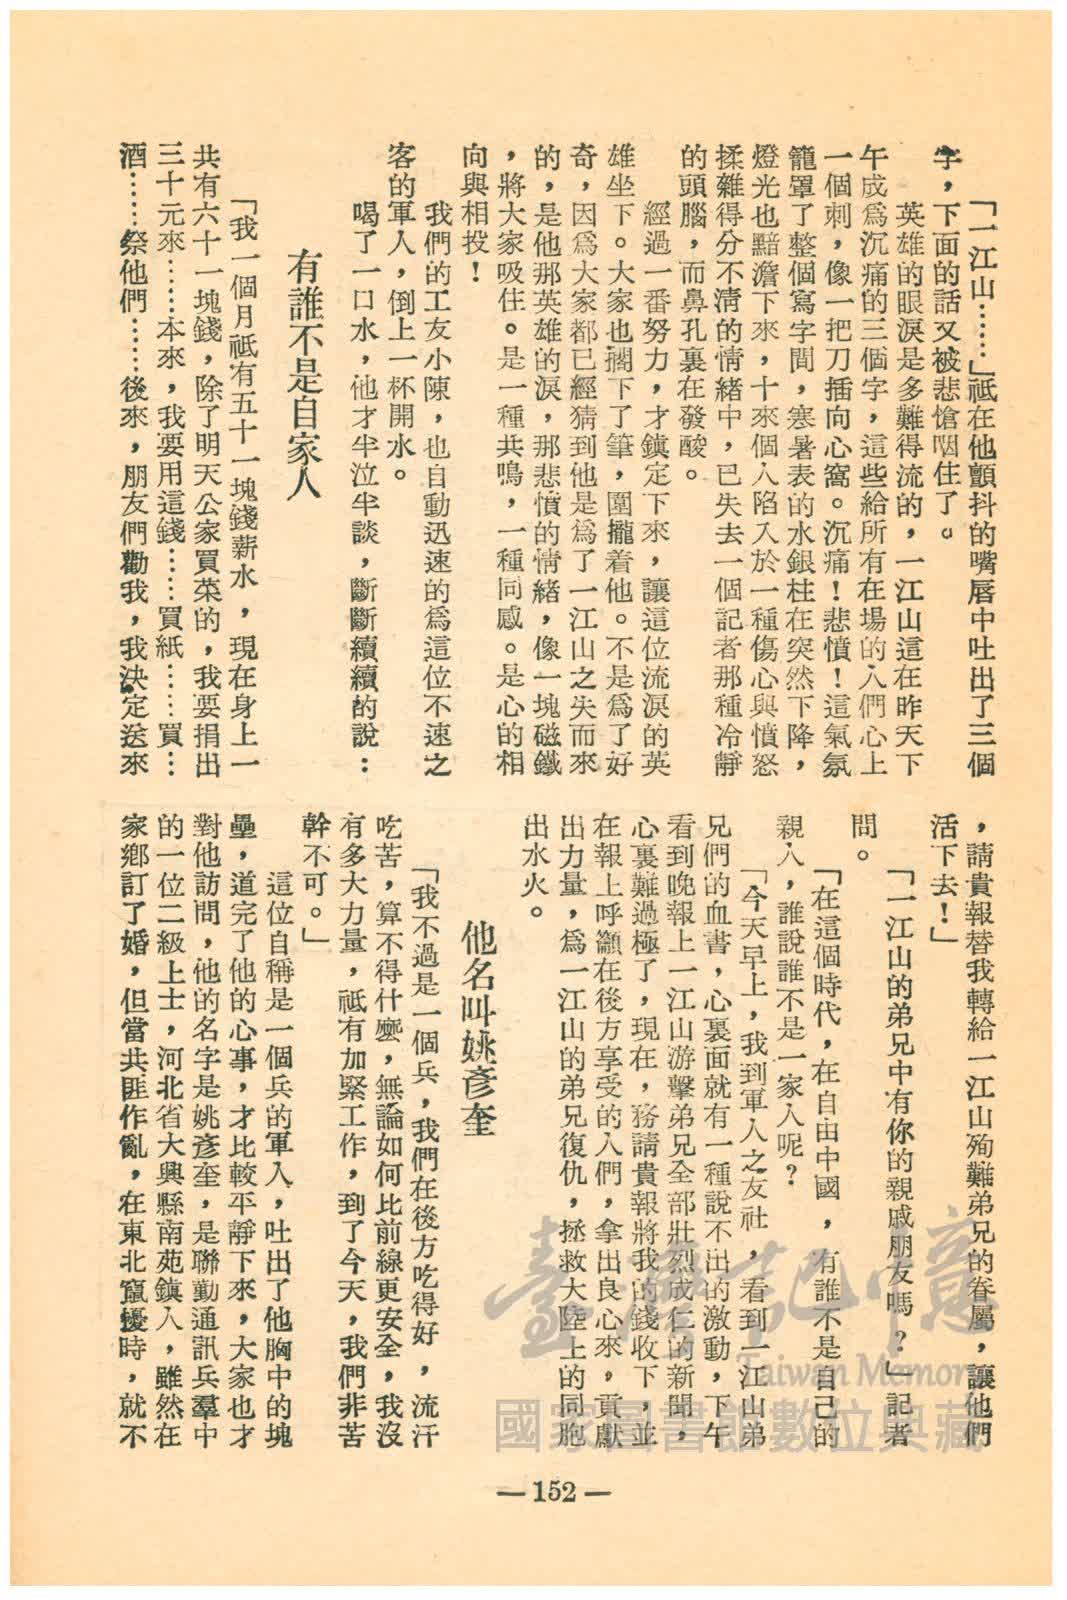 「一江山……」祗在他顫抖的嘴唇中吐出了三個
字，下面的話又被悲愴咽住了。
英雄的眼淚是多難得流的，一江山這在昨天下
午成爲沉痛的三個字，這些給所有在場的人們心上
一個刺，像一把刀插向心窩。沉痛！悲憤！這氣氛
籠罩了整個寫字間，寒暑表的水銀柱在突然下降，
燈光也黯澹下來，十來個人陷入於一種傷心與憤怒
揉雜得分不淸的情緒中，已失去一個記者那種冷靜
的頭腦，而鼻孔裏在發酸。
經過一番努力，才鎭定下來，讓這位流淚的英
雄坐下。大家也擱下了筆，圍攏着他。不是爲了好
奇，因爲大家都已經猜到他是爲了一江山之失而來
的，是他那英雄的淚，那悲憤的情緖，像一塊磁鐵
，將大家吸住。是一種共鳴，一種同感。是心的相
向與相投！
我們的工友小陳，也自動迅速的爲這位不速之
客的軍人，倒上一杯開水。
喝了一口水，他才半泣半談，斷斷續續的說：
有誰不是自家人
「我一個月祗有五十一塊錢薪水，現在身上一
共有六十一塊錢，除了明天公家買菜的，我要捐出
三十元來……本來，我要用這錢……買紙……買…
酒……祭他們……後來，朋友們勸我，我決定送來
，請貴報替我轉給一江山殉難弟兄的眷屬，讓他們
活下去！」
「一江山的弟兄中有你的親戚朋友嗎？」記者
問。
「在這個時代，在自由中國，有誰不是自己的
親人，誰說誰不是一家人呢？
「今天早上，我到軍人之友社，看到一江山弟
兄們的血書，心裏面就有一種說不出的激動，下午
看到晚報上一江山游擊弟兄全部壯烈成仁的新聞，
心裏難過極了，現在，務請貴報將我的錢收下，並
在報上呼籲在後方享受的人們，拿出良心來，貢獻
出力量，爲一江山的弟兄復仇，拯救大陸上的同胞
出水火。
他名叫姚彥奎
「我不過是一個兵，我們在後方吃得好，流汗
吃苦，算不得什麼，無論如何比前線更安全，我沒
有多大力量，祗有加緊工作，到了今天，我們非苦
幹不可。」
這位自稱是一個兵的軍人，吐出了他胸中的塊
壘，道完了他的心事，才比較平靜下來，大家也才
對他訪問，他的名字是姚彥奎，是聯勤通訊兵羣中
的一位二級上士，河北省大興縣南苑鎭人，雖然在
家鄉訂了婚，但當共匪作亂，在東北竄擾時，就不
—152—
臺灣記憶
Taiwan Memory
國家圖書館數位典藏